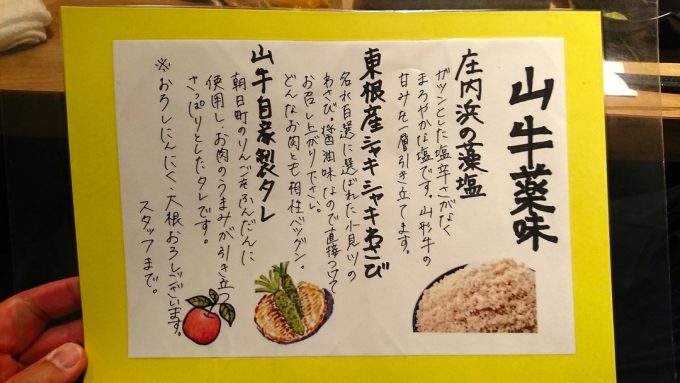 山牛薬味
庄内浜の藻塩
ガツンとした塩辛さがなく
まろやかな塩です。山形牛の
甘みを一層引き立てます。
東根産シャキシャキわさび
名水百選に選ばれた小見川の
わさび・醤油味なので直接つけて
お召し上がり下さい。
どんなお肉とも相性バツグン。
山牛自家製タレ
朝日町のりんごをふんだんに
使用し、お肉のうまみが引き立つ
さっぱりとしたタレです。
※おろしにんにく・大根おろしございます。
スタッフまで。